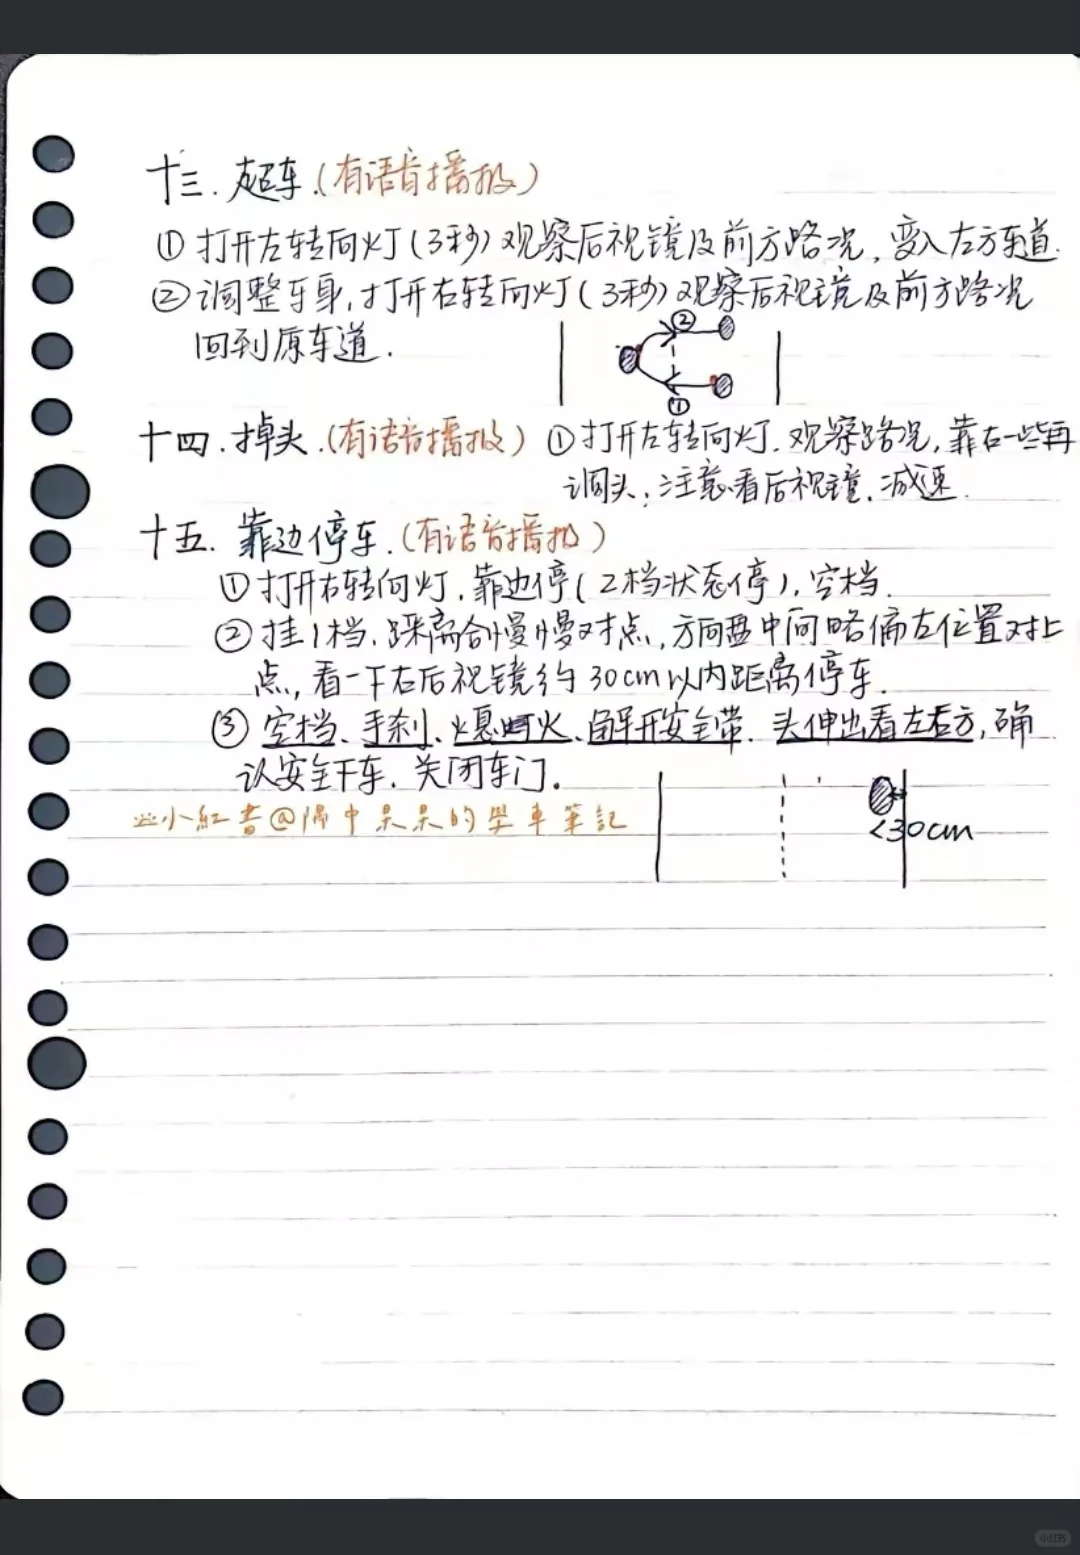 十三.超车.(有语音播报)
①打开左转向灯(3秒)观察后视镜及前方路况,变入左方车道.
②调整车身,打开右转向灯(3秒)观察后视镜及前方路况
回到原车道.
②
①
十四.掉头.(有语音播报) ①打开左转向灯.观察路况,靠右一些再
调头,注意看后视镜,减速.
十五.靠边停车.(有语音播报)
①打开右转向灯,靠边停(2档状态停),空档.
②挂1档,踩离合慢慢对点,方向盘中间略偏左位置对上
点,看一下右后视镜约30cm以内距离停车.
③空档、手刹、熄火、解开安全带.头伸出看左右方,确
认安全下车.关闭车门。
小紅書@隔中呆呆的學車筆記
<30cm
小红书